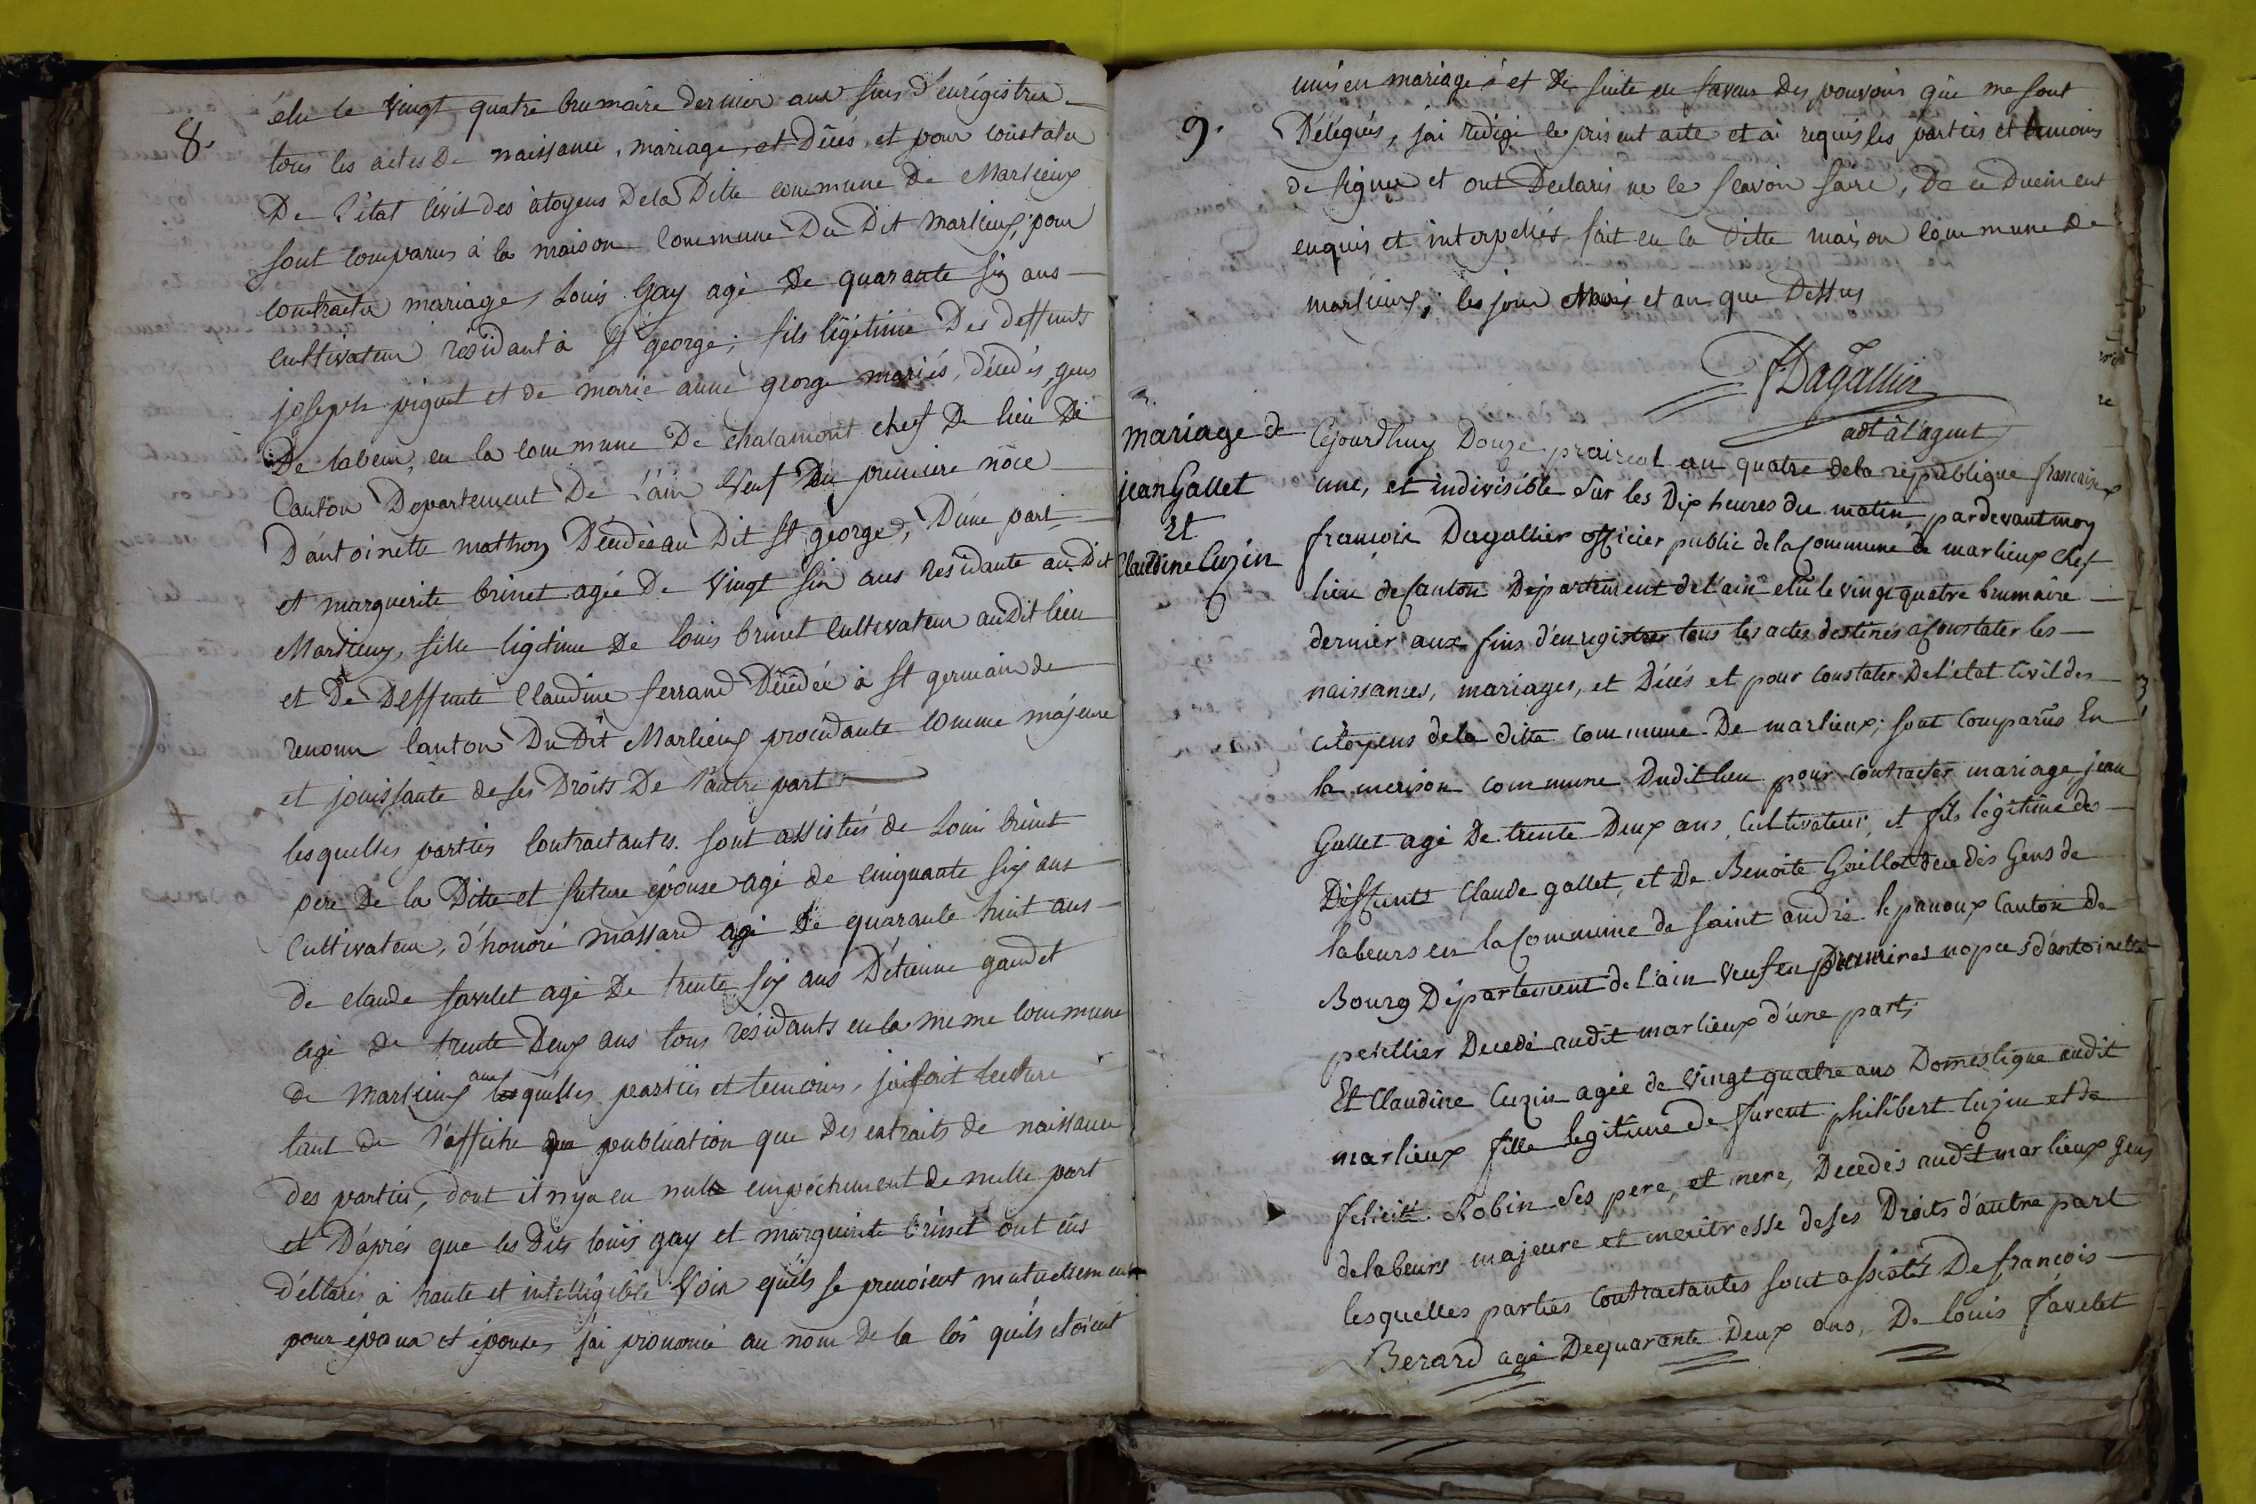 8.
élu le vingt quatre brumaire dernier aux fins d'enrégistrer
tous les actes De naissance, mariage, et Décés, et pour constater
De l'état civil des citoyens De la Ditte commune De Marlieux
sont comparus à la maison Commune Du Dit marlieux, pour
contracter mariage, Louis Gay agé De quarante six ans
cultivateur residant à St george; fils légitime Des deffunts
joseph piquet et de marie anne george mariés, décédés, gens
De labeur, en la commune De chalamont chef De lieu De
Canton Departement De L'ain Veuf De premiere nôce
D'antoinette mathon Décédée au Dit St george, D'une part
et marguerite brinet agée De vingt six ans residante au Dit
Marlieux, fille legitime De louis brinet Cultivateur audit lieu
et De Deffunte Claudine ferrand Décédée à St germain de
renonn Canton Du Dit Marlieux procédante comme majeure
et jouissante de ses Droits De l'autre part
lesquelles parties Contractantes. sont assistées de Louis brinet
pere De la Ditte et future épouse agé de cinquante six ans
Cultivateur, d'honoré massard agé De quarante huit ans
de claude favelet agé De trente six ans D'etienne gaudet
agé De trente Deux ans tous résidants en la meme commune
de Marlieux auxquelles parties et temoins, j'ai fait lecture
tant de l'affiche de publication que Des extraits de naissance
des parties, dont il n'y a eu nulle empéchement de nulle part
et D'aprés que les Dits louis gay et marguerite brinet ont eûs
déclarés à haute et intelligible Voix qu'ils se prenoient mutuellement
pour épous et épouse, j'ai prononcé au nom De la loi qu'ils etoient
9.
unis en mariage et De suite en faveur Des pouvoirs qui me sont
Délégués, j'ai redigé le present acte et ai requis les parties et témoins
de signer et ont Declarés ne le scavoir faire, De ce Duement
enquis et interpellés fait en la Ditte maison commune De
marlieux, les jour Mois et an que Dessus
F Dagallier
adt à l'agent
mariage de
jean Gallet
Et
Claudine Cuzin
Cejourdhuy Douze prairéal an quatre de la république française
une, et indivisible sur les Dix heures du matin, pardevant moy
françois Dagallier officier public de la Commune de marlieux chef
lieu de Canton Département de l'ain elû le vingt quatre brumaire
dernier aux fins d'enregistrer tous les actes destinés a Constater les
naissances, mariages, et Décés et pour constater De l'etat Civil des
citoyens de la ditte commune De marlieux; sont comparûs En
la meison commune Dudit lieu pour contracter mariage, jean
Gallet agé De trente Deux ans, Cultivateur, et fils légitime des
Deffunts Claude gallet, et De Benoite Guillot decedés Gens de
labeurs en la Commune de saint andré le panoux Canton de
Bourg Département de l'ain Veuf en premieres nopces d'antoinette
petellier Decedé audit marlieux d'une part;
Et Claudine Cuzin agée de vingt quatre ans Domestique audit
marlieux fille legitime De furent philibert Cuzin et de
felicité Robin ses pere, et mere, Decedés audit marlieux gens
de labeurs majeure et meitresse de ses Droits d'autre part
lesquelles parties contractantes sont assistés De françois
Berard agé De quarante Deux ans, De louis favelet